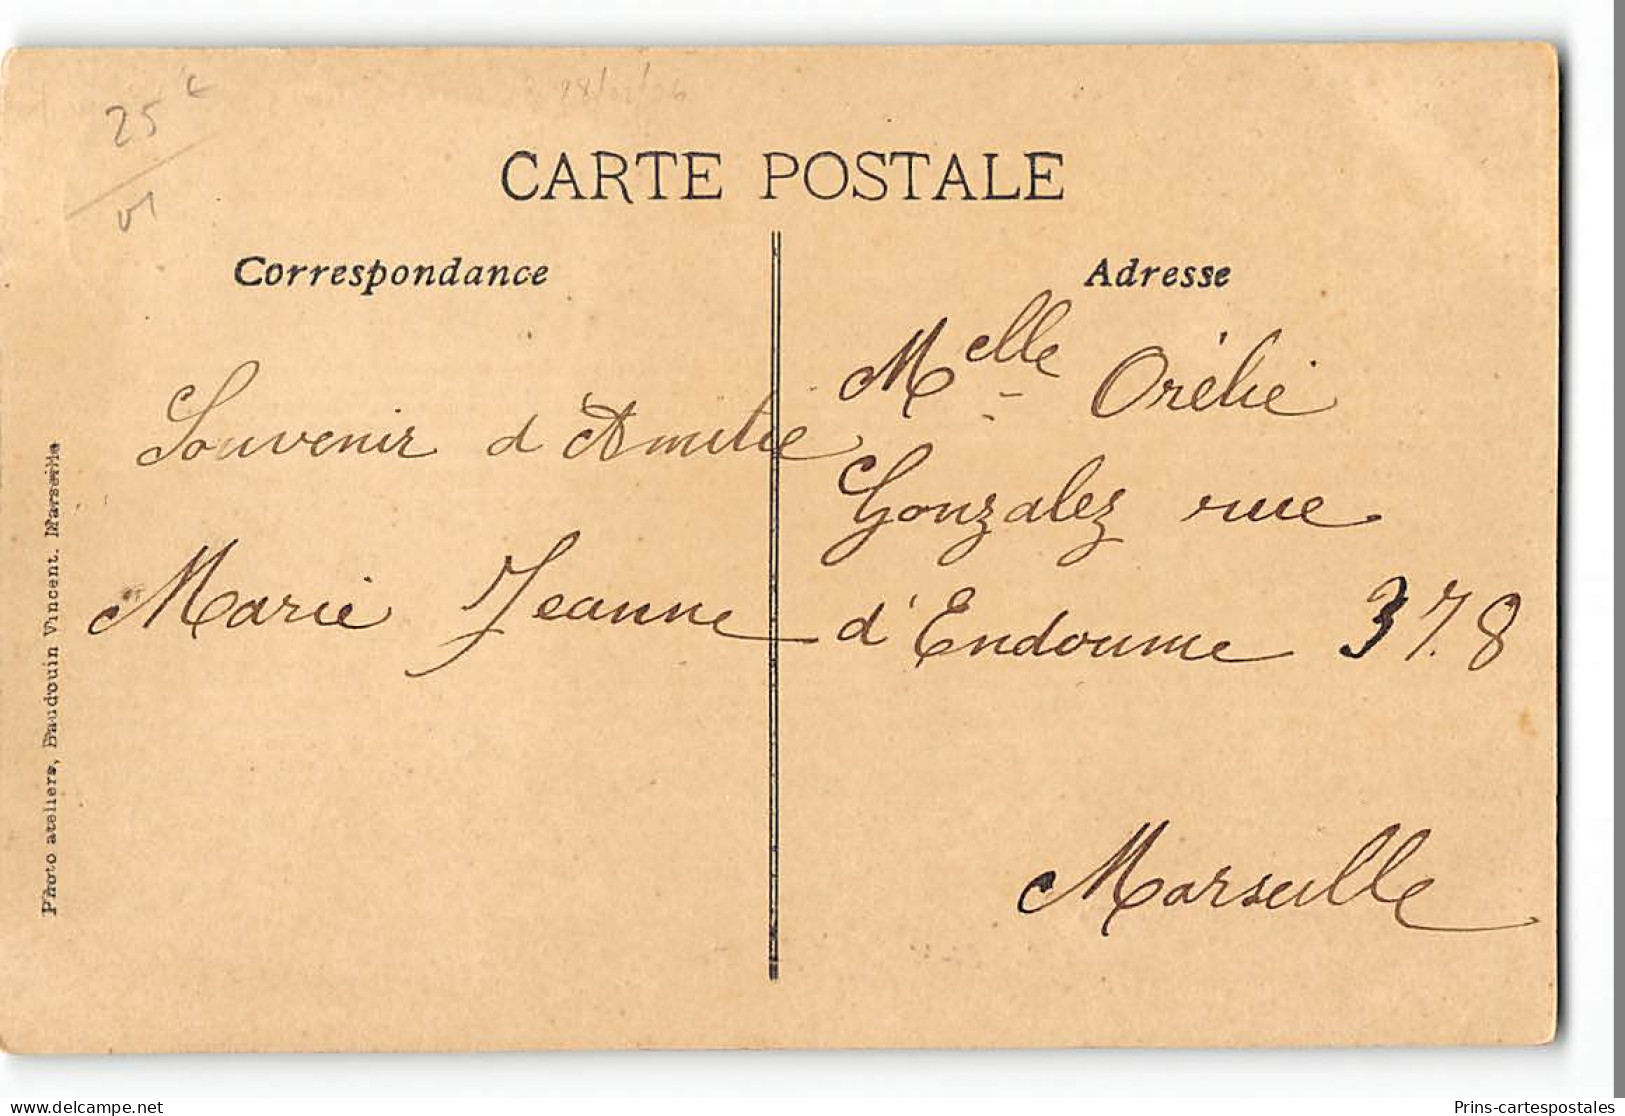 25 €
CARTE POSTALE
Correspondance
Adresse
Souvenir d'Amitié
Marie Jeanne
Melle Orélie
Gonzalez rue
d'Endoume 378
Marseille
Photo ateliers, Baudouin Vincent. Marseille
delcampe.net
Prins-cartespostales